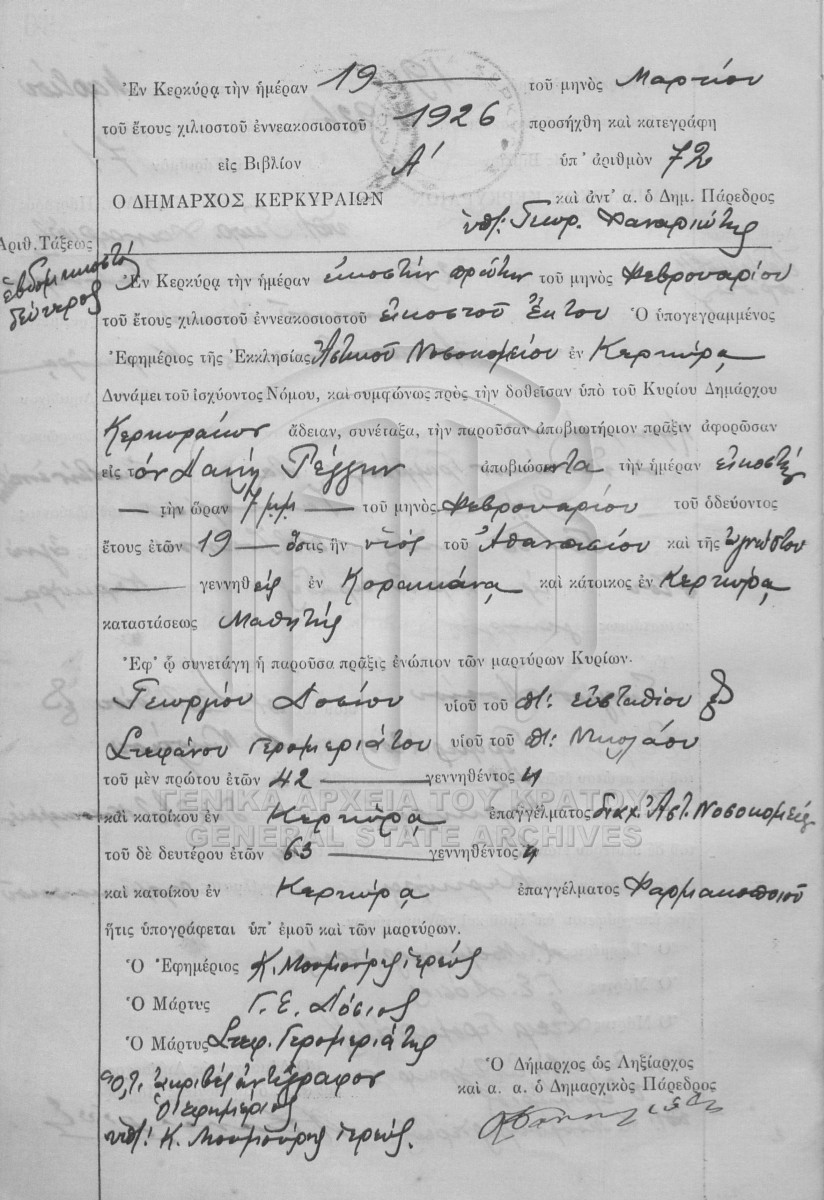 Ἐν Κερκύρᾳ τὴν ἡμέραν 19 τοῦ μηνὸς Μαρτίου
τοῦ ἔτους χιλιοστοῦ ἐννεακοσιοστοῦ 1926 προσήχθη καὶ κατεγράφη
εἰς Βιβλίον Α' ὑπ' ἀριθμὸν 72
Ο ΔΗΜΑΡΧΟΣ ΚΕΡΚΥΡΑΙΩΝ καὶ ἀντ' α. ὁ Δημ. Πάρεδρος
ὑπ: Γεωρ. Φαναριώτης
Ἀριθ. Τάξεως
ἑβδομηκοστὸ
δεύτερος
Ἐν Κερκύρᾳ τὴν ἡμέραν εἰκοστὴν πρώτην τοῦ μηνὸς Φεβρουαρίου
τοῦ ἔτους χιλιοστοῦ ἐννεακοσιοστοῦ εἰκοστοῦ ἕκτου Ὁ ὑπογεγραμμένος
Ἐφημέριος τῆς Ἐκκλησίας Ἀστικοῦ Νοσοκομείου ἐν Κερκύρᾳ
Δυνάμει τοῦ ἰσχύοντος Νόμου, καὶ συμφώνως πρὸς τὴν δοθεῖσαν ὑπὸ τοῦ Κυρίου Δημάρχου
Κερκυραίων ἄδειαν, συνέταξα, τὴν παροῦσαν ἀποβιωτήριον πρᾶξιν ἀφορῶσαν
εἰς τὸν ἀποβιώσαντα τὴν ἡμέραν εἰκοστὴ
τὴν ὥραν 7 μμ τοῦ μηνὸς Φεβρουαρίου τοῦ ὁδεύοντος
ἔτους ἐτῶν 19 ὅστις ἦν υἱὸς τοῦ Ἀθανασίου καὶ τῆς ἀγνώστου
γεννηθεὶς ἐν Κορακιάνᾳ καὶ κάτοικος ἐν Κερκύρᾳ
καταστάσεως Μαθητής
Ἐφ' ᾧ συνετάγη ἡ παροῦσα πρᾶξις ἐνώπιον τῶν μαρτύρων Κυρίων.
Γεωργίου Δοσίου υἱοῦ τοῦ π: Εὐσταθίου
Στεφάνου Γερομεριάτου υἱοῦ τοῦ π: Νικολάου
τοῦ μὲν πρώτου ἐτῶν 42 γεννηθέντος
καὶ κατοίκου ἐν Κερκύρᾳ ἐπαγγέλματος διαχ. Ἀστ. Νοσοκομείου
ΓΕΝΙΚΑ ΑΡΧΕΙΑ ΤΟΥ ΚΡΑΤΟΥΣ
GENERAL STATE ARCHIVES
τοῦ δὲ δευτέρου ἐτῶν 63 γεννηθέντος
καὶ κατοίκου ἐν Κερκύρᾳ ἐπαγγέλματος Φαρμακοποιοῦ
ἥτις ὑπογράφεται ὑπ' ἐμοῦ καὶ τῶν μαρτύρων.
Ὁ Ἐφημέριος Κ. Μουμούρης ἱερεύς
Ὁ Μάρτυς Γ. Ε. Δόσιος
Ὁ Μάρτυς Στεφ. Γερομεριάτης
Ὅ,τι ἀκριβὲς ἀντίγραφον
Ὁ Ἐφημέριος
ὑπ: Κ. Μουμούρης ἱερεύς.
Ὁ Δήμαρχος ὡς Ληξίαρχος
καὶ α. α. ὁ Δημαρχικὸς Πάρεδρος